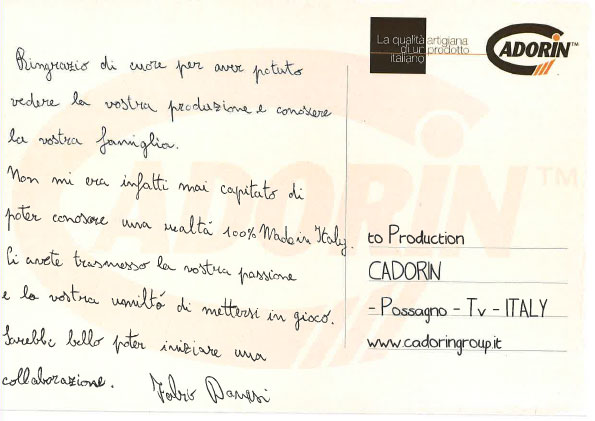 La qualità artigiana
di un prodotto
italiano
CADORIN™
Ringrazio di cuore per aver potuto
vedere la vostra produzione e conoscere
la vostra famiglia.
Non mi era infatti mai capitato di
poter conoscere una realtà 100% Made in Italy.
Ci avete trasmesso la vostra passione
e la vostra umiltà di mettersi in gioco.
Sarebbe bello poter iniziare una
collaborazione. Fabio Danesi
to Production
CADORIN
- Possagno - Tv - ITALY
www.cadoringroup.it
CADORIN™